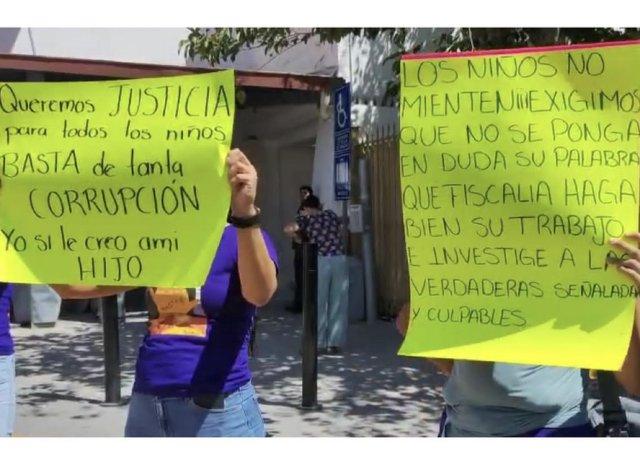 Queremos JUSTICIA
para todos los niños
BASTA de tanta
CORRUPCIÓN
Yo si le creo ami
HIJO
LOS NIÑOS NO
MIENTEN!!!EXIGIMOS
QUE NO SE PONGA
EN DUDA SU PALABRA
QUE FISCALIA HAGA
BIEN SU TRABAJO
E INVESTIGE A LAS
VERDADERAS SEÑALADA
Y CULPABLES